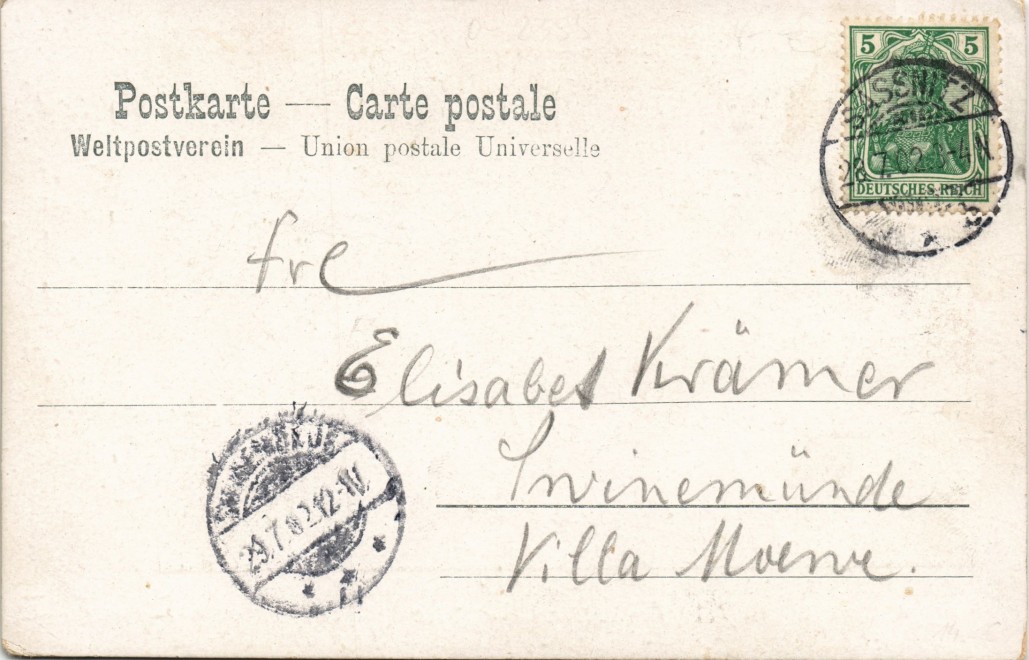 Postkarte — Carte postale
Weltpostverein — Union postale Universelle
5 5
DEUTSCHES REICH
SASSNITZ
28.7.02
Frl
Elisabet Krämer
Swinemünde
Villa Moewe.
29.7.02.12-1N